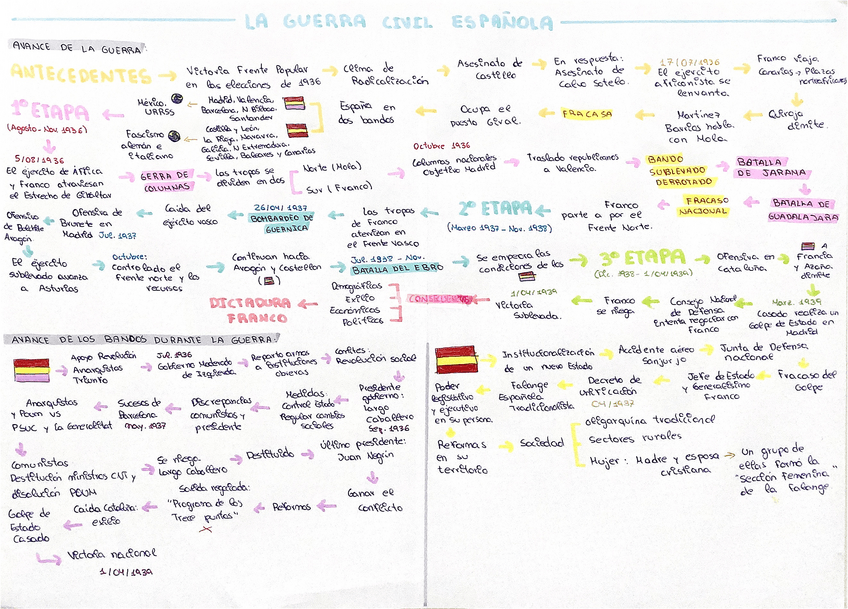 LA GUERRA CIVIL ESPAÑOLA
AVANCE DE LA GUERRA:
ANTECEDENTES
Victoria Frente Popular
en las elecciones de 1936
Clima de
Radicalización
Asesinato de
Castillo
En respuesta:
Asesinato de
Calvo Sotelo.
17/07/1936
El ejército
africanista se
levanta.
Franco viaja
Canarias → Plazas
norteafricanas
Quiroga
dimite.
Martínez
Barrios habla
con Mola.
FRACASA
Ocupa el
puesto Giral.
España en
dos bandos
Madrid, Valencia,
Barcelona, N Bilbao,
Santander
Castilla y León
la Rioja, Navarra,
Galicia, N Extremadura,
Sevilla, Baleares y Canarias
México,
URRSS
Fascismo
alemán e
italiano
1ª ETAPA
(Agosto - Nov. 1936)
5/08/1936
El ejército de África
y Franco atraviesan
el Estrecho de Gibraltar
GERRA DE
COLUMNAS
las tropas se
dividen en dos
Norte (Mola)
Sur (Franco)
Octubre 1936
Columnas nacionales
objetivo Madrid
Traslado republicanos
a Valencia.
BANDO
SUBLEVADO
DERROTADO
BATALLA
DE JARAMA
BATALLA DE
GUADALAJARA
FRACASO
NACIONAL
Franco
parte a por el
Frente Norte.
2ª ETAPA
(Marzo 1937 - Nov. 1938)
las tropas
de Franco
aterrizan en
el Frente Vasco
26/04/1937
BOMBARDEO DE
GUERNICA
Caida del
ejército vasco
Ofensiva de
Brunete en
Madrid Jul. 1937
Ofensiva
de Belchite
Aragón
El ejército
sublevado avanza
a Asturias
Octubre:
Controlado el
frente norte y los
recursos
Continuan hacia
Aragón y Castellón
Jul. 1938 - Nov.
BATALLA DEL EBRO
Se empeora las
condiciones de los
3ª ETAPA
(Dic. 1938 - 1/04/1939)
Ofensiva en
Cataluña.
A
Francia
y Azaña
dimite
Marz. 1939
Casado realiza un
Golpe de Estado en
Madrid
Consejo Nacional
de Defensa
Intenta negociar con
Franco
Franco
se niega
1/04/1939
Victoria
Sublevada.
CONSECUENCIAS
Demográficas
Exilio
Económicas
Políticas
DICTADURA
FRANCO
AVANCE DE LOS BANDOS DURANTE LA GUERRA:
Apoyo Revolución
Anarquistas
Triunfo
Jul. 1936
Gobierno Moderado
de Izquierda
Reparto armas
a Instituciones
obreras
Conflictos
Revolución social
Presidente
gobierno:
Largo
Caballero
Sep. 1936
Medidas:
Control Estado
Regular cambios
sociales
Discrepancias
comunistas y
presidente
Sucesos de
Barcelona
May. 1937
Anarquistas
y Poum VS
PSUC y la Generalitat
Comunistas:
Destitución ministros CNT y
disolución POUM
Se niega
Largo Caballero
Destituido
Último presidente:
Juan Negrín
Ganar el
conflicto
Reformas
Salida negociada:
"Programa de los
Trece puntos"
X
Caida Cataluña:
exilio
Golpe de
Estado
Casado
Victoria nacional
1/04/1939
Institucionalización
de un nuevo Estado
Accidente aéreo
Sanjurjo
Junta de Defensa
nacional
Fracaso del
Golpe
Jefe de Estado
y Generalísimo
Franco
Decreto de
UNIFICACIÓN
04/1937
Falange
Española
Tradicionalista
Poder
legislativo
y ejecutivo
en su persona.
Reformas
en su
territorio
Sociedad
Oligarquía tradicional
Sectores rurales
Mujer: Madre y esposa
cristiana
Un grupo de
ellas formó la
"Sección Femenina"
de la Falange